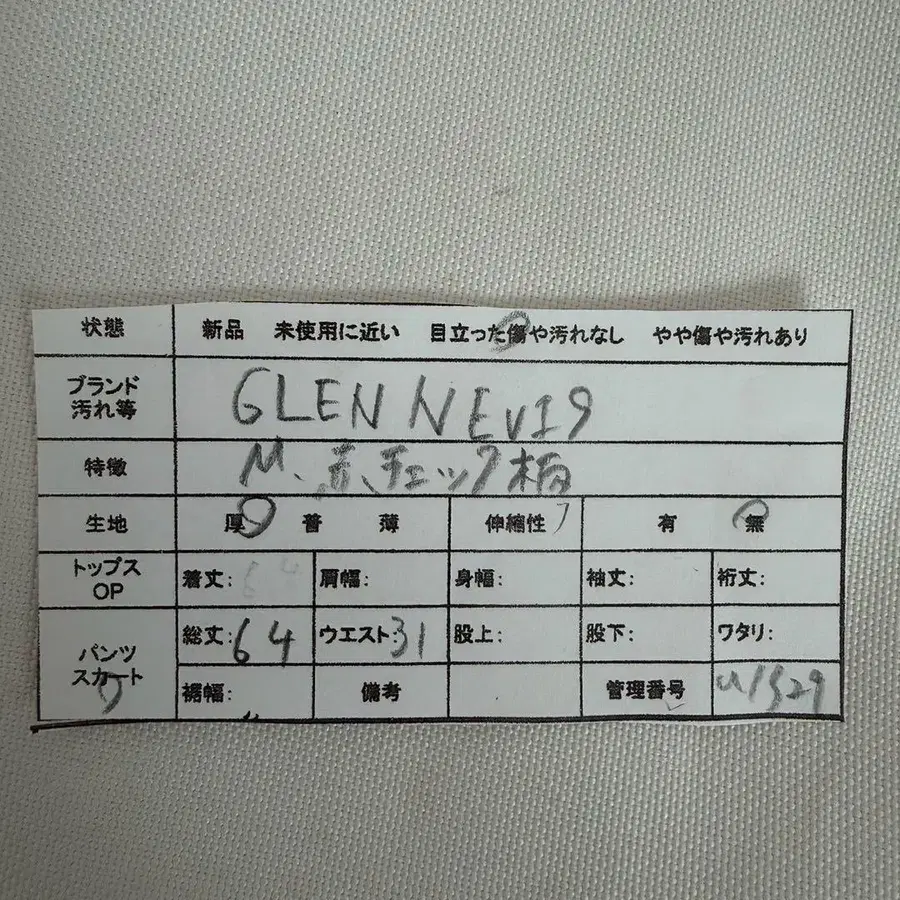 状態 新品 未使用に近い 目立った傷や汚れなし やや傷や汚れあり
ブランド 汚れ等 GLEN NEVI9
特徴 M、赤、チェック柄
生地 厚 普 薄 伸縮性 有 無
トップス OP 着丈: 64 肩幅: 身幅: 袖丈: 裄丈:
パンツ スカート 総丈: 64 ウエスト: 31 股上: 股下: ワタリ:
裾幅: 備考 管理番号